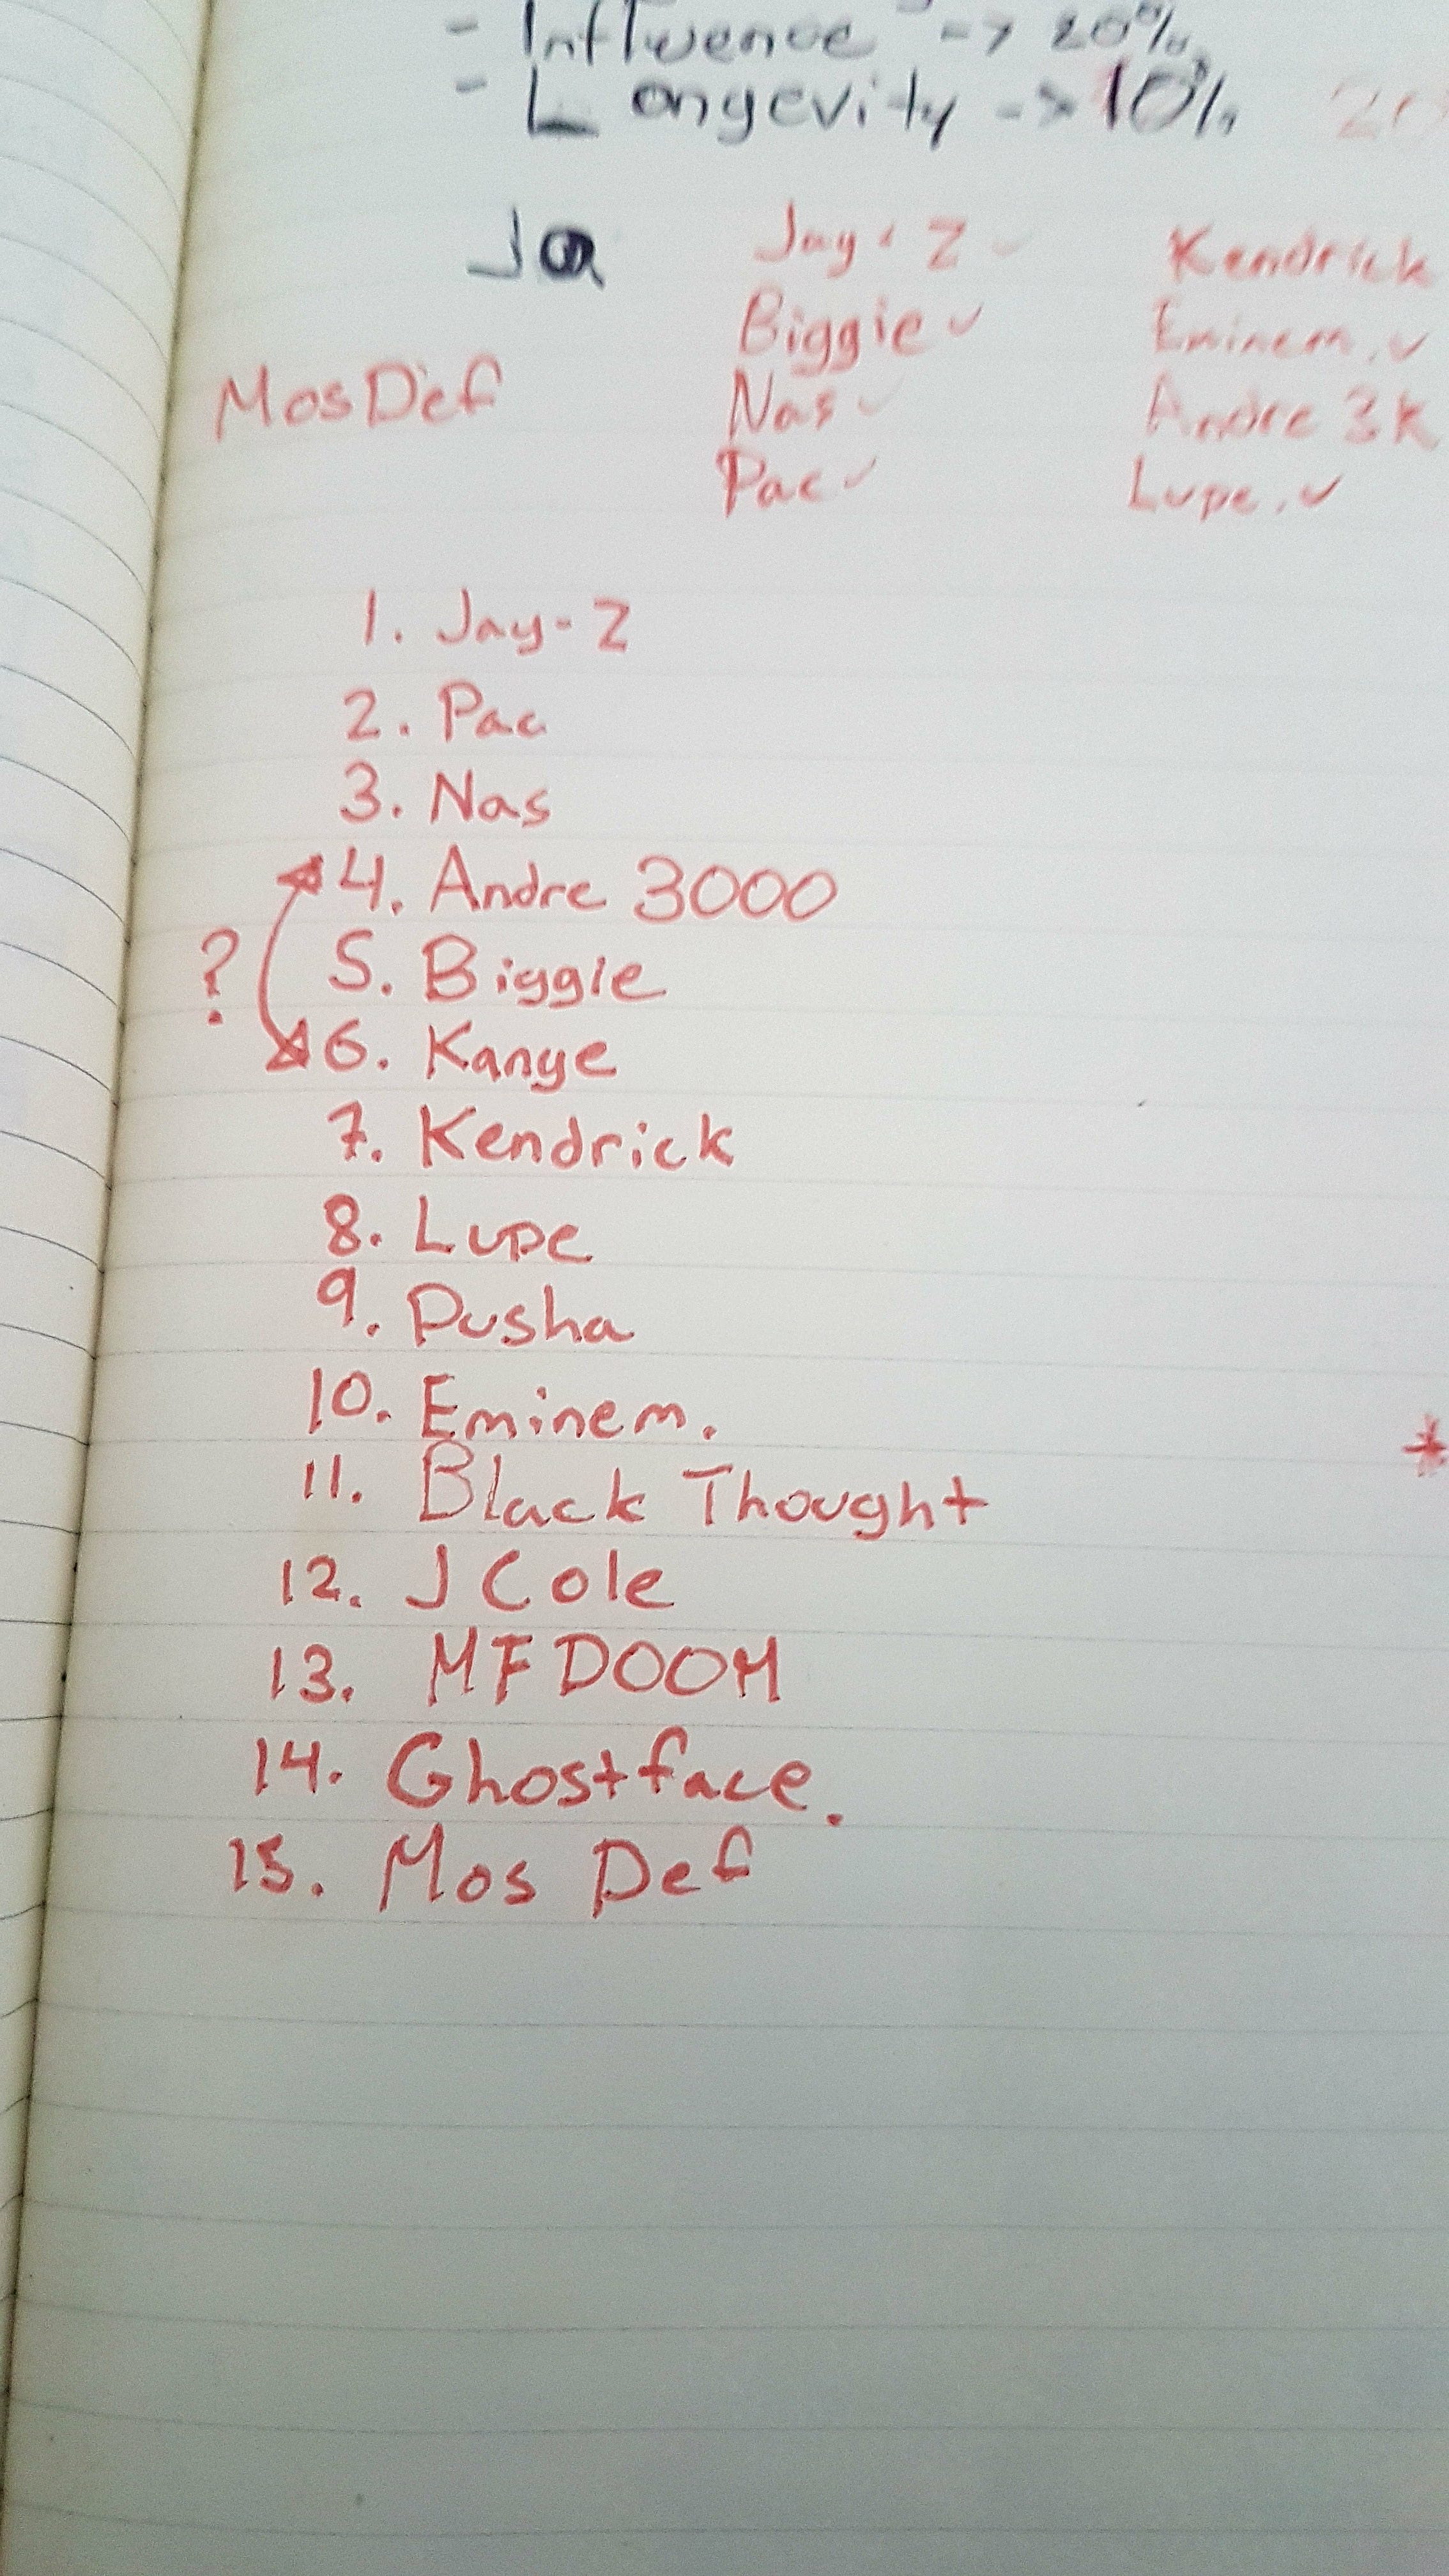 - Influence -> 20%
- Longevity -> 10% 20
Ja Jay-Z Kendrick
Biggie ✓ Eminem. ✓
Mos Def Nas ✓ Andre 3K
Pac ✓ Lupe. ✓
1. Jay-Z
2. Pac
3. Nas
4. Andre 3000
? 5. Biggie
6. Kanye
7. Kendrick
8. Lupe
9. Pusha
10. Eminem.
11. Black Thought
12. J Cole
13. MF DOOM
14. Ghostface.
15. Mos Def
*